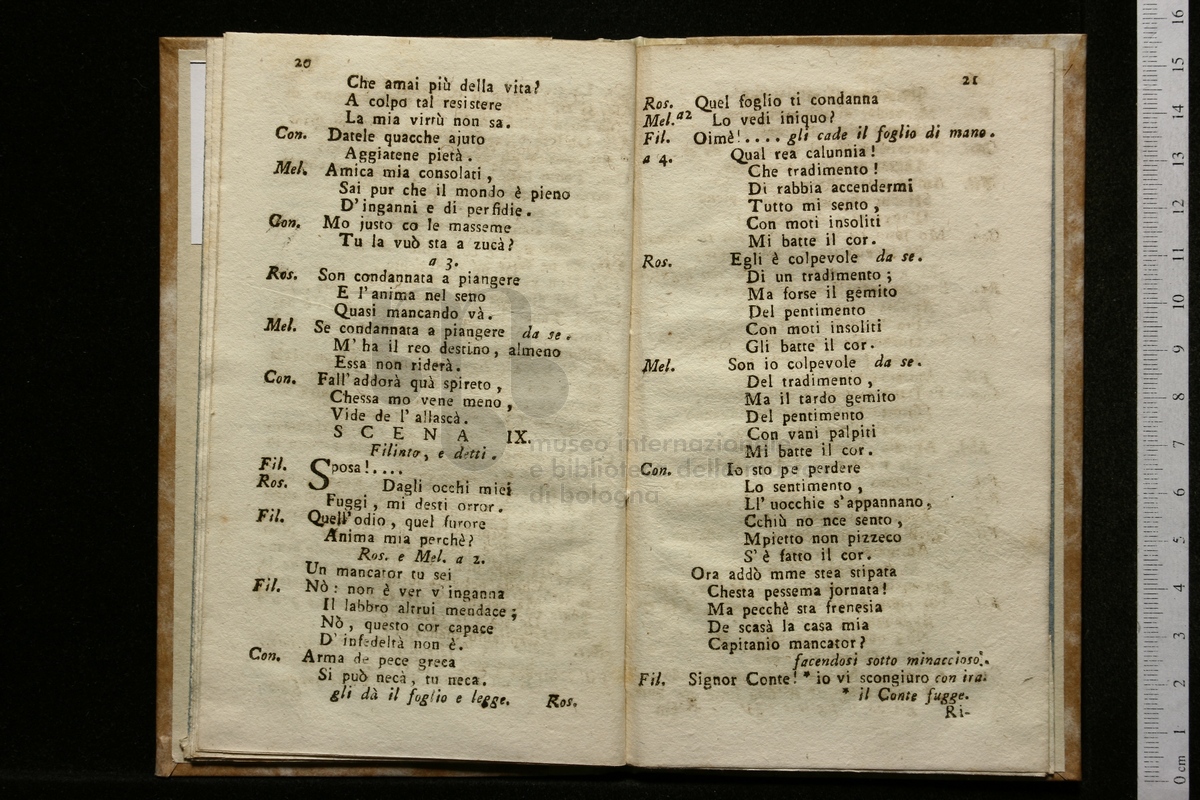 20
Che amai più della vita?
A colpo tal resistere
La mia virrù non sa.
Con. Datele quacche ajuto
Aggiatene pietà.
Mel. Amica mia consolati,
Sai pur che il mondo è pieno
D'inganni e di perfidie.
Con. Mo justo co le masseme
Tu la vuò sta a zucà?
a 3.
Ros. Son condannata a piangere
E l'anima nel seno
Quasi mancando và.
Mel. Se condannata a piangere da se.
M' ha il reo destino, almeno
Essa non riderà.
Con. Fall' addorà quà spireto,
Chessa mo vene meno,
Vide de l' allascà.
SCENA IX.
Filinto, e detti.
Fil. Sposa!....
Ros. Dagli occhi miei
Fuggi, mi desti orror.
Fil. Quell' odio, quel furore
Anima mia perchè?
Ros. e Mel. a 2.
Un mancator tu sei
Fil. Nò: non è ver v'inganna
Il labbro altrui mendace;
Nò, questo cor capace
D' infedeltà non è.
Con. Arma de pece greca
Si può necà, tu neca.
gli dà il foglio e legge. Ros.
21
Ros. Quel foglio ti condanna
Mel. a2 Lo vedi iniquo?
Fil. Oimè!.... gli cade il foglio di mano.
a 4. Qual rea calunnia!
Che tradimento!
Di rabbia accendermi
Tutto mi sento,
Con moti insoliti
Mi batte il cor.
Ros. Egli è colpevole da se.
Di un tradimento;
Ma forse il gemito
Del pentimento
Con moti insoliti
Gli batte il cor.
Mel. Son io colpevole da se.
Del tradimento,
Ma il tardo gemito
Del pentimento
Con vani palpiti
Mi batte il cor.
Con. Io sto pe perdere
Lo sentimento,
Ll' uocchie s'appannano,
Cchiù no nce sento,
Mpietto non pizzeco
S' è fatto il cor.
Ora addò mme stea stipata
Chesta pessema jornata!
Ma pecchè sta frenesia
De scasà la casa mia
Capitanio mancator?
facendosi sotto minaccioso.
Fil. Signor Conte! * io vi scongiuro con ira.
* il Conte fugge.
Ri-
museo internazionale
e biblioteca della
di bologna
0 cm 1 2 3 4 5 6 7 8 9 10 11 12 13 14 15 16